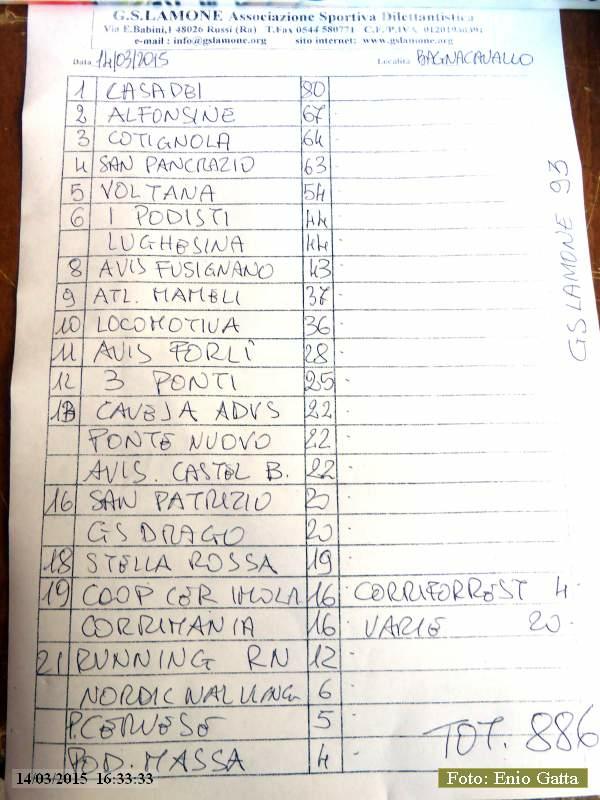 G.S.LAMONE Associazione Sportiva Dilettantistica
Via E.Babini,1 48026 Russi (Ra) T.Fax 0544 580771 C.F./P.IVA 01201930391
e-mail : info@gslamone.org sito internet: www.gslamone.org
Data 14/03/2015 Località BAGNACAVALLO
1 CASADEI 80
2 ALFONSINE 67
3 COTIGNOLA 64
4 SAN PANCRAZIO 63
5 VOLTANA 54
6 I PODISTI 44
LUGHESINA 44
8 AVIS FUSIGNANO 43
9 ATL. MAMELI 37
10 LOCOMOTIVA 36
11 AVIS FORLÌ 28
12 3 PONTI 25
13 CAVEJA ADVS 22
PONTE NUOVO 22
AVIS. CASTEL B. 22
16 SAN PATRIZIO 20
GS DRAGO 20
18 STELLA ROSSA 19
19 COOP CER IMOLA 16 CORRIFORREST 4
CORRIMANIA 16 VARIE 20
21 RUNNING RN 12
NORDIC 6
P.CERVESE 5
POD. MASSA 4
TOT. 886
GS LAMONE 93
14/03/2015 16:33:33
Foto: Enio Gatta